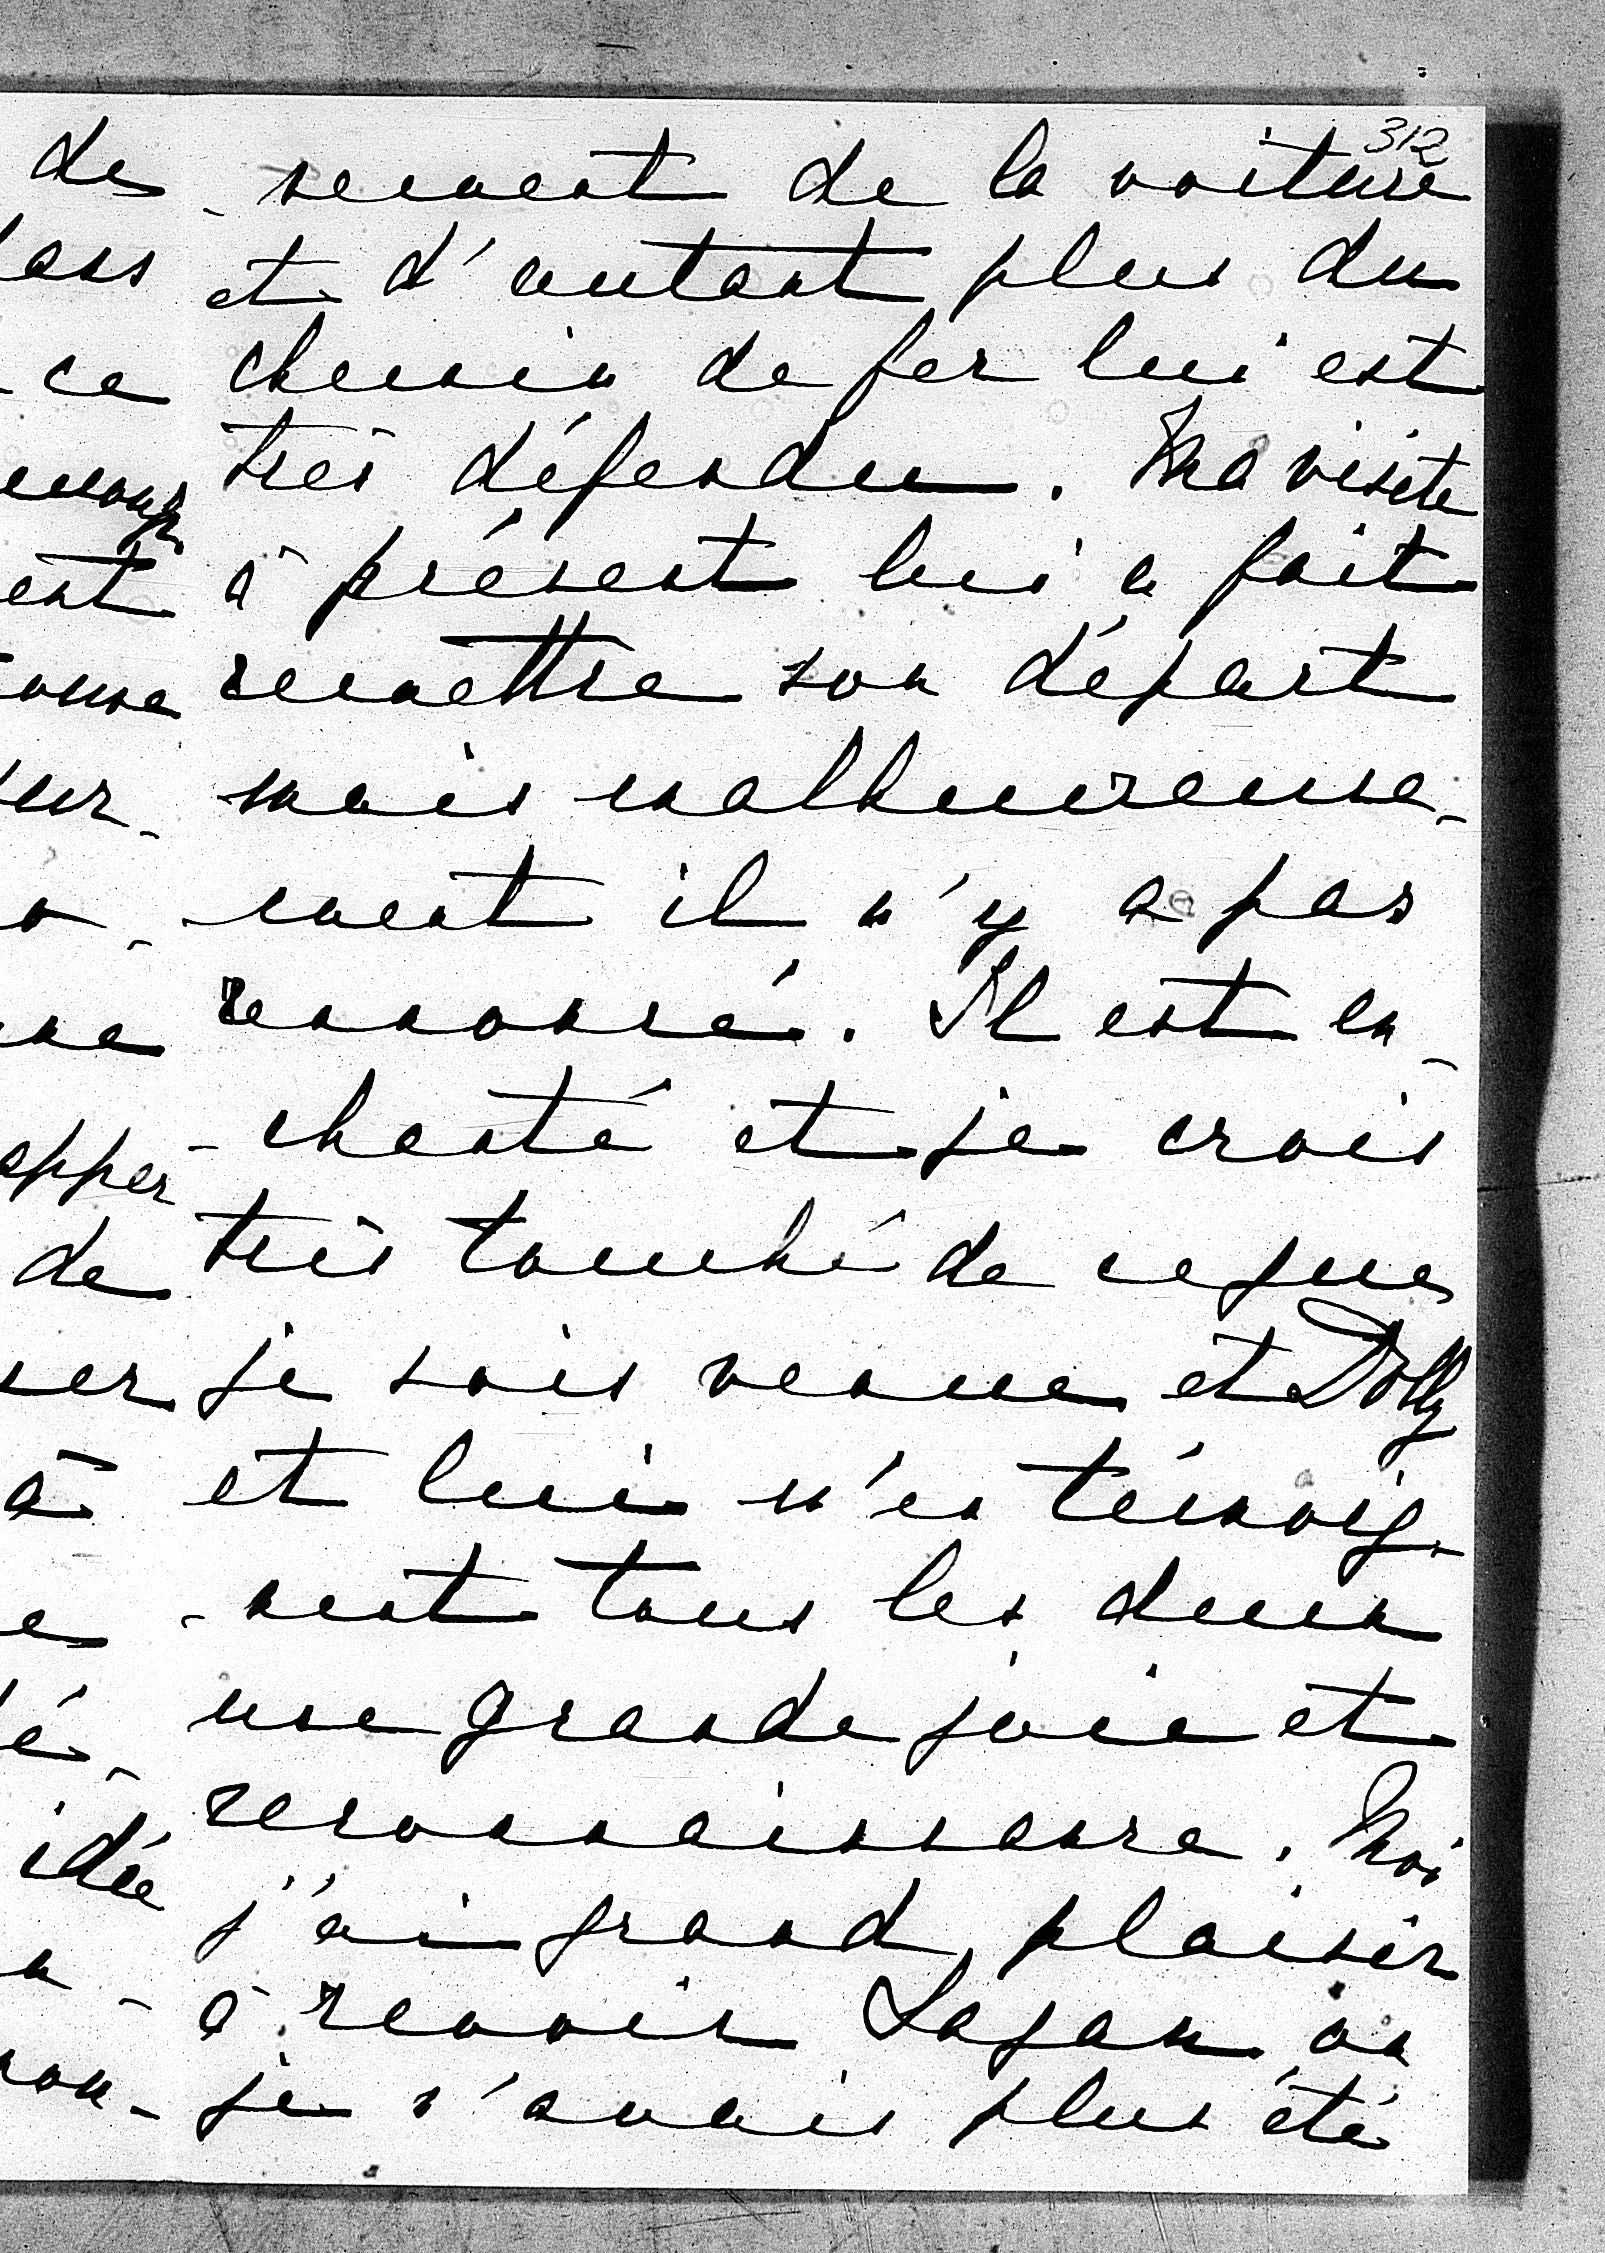 312
de
-sement de la voiture
et d'autant plus du
ce
chemin de fer lui est
très défendu. Ma visite
est
à présent lui a fait
remettre son départ
mais malheureuse-
-ment il n'y a pas
renoncé. Il est en-
-chanté et je crois
de
très touché de ceque
je sois venue et Dolly
à
et lui m'en témoig-
-nent tous les deux
une grande joie et
idée
reconnaissance. Moi
j'ai grand plaisir
à revoir Sagan où
je n'avais plus été